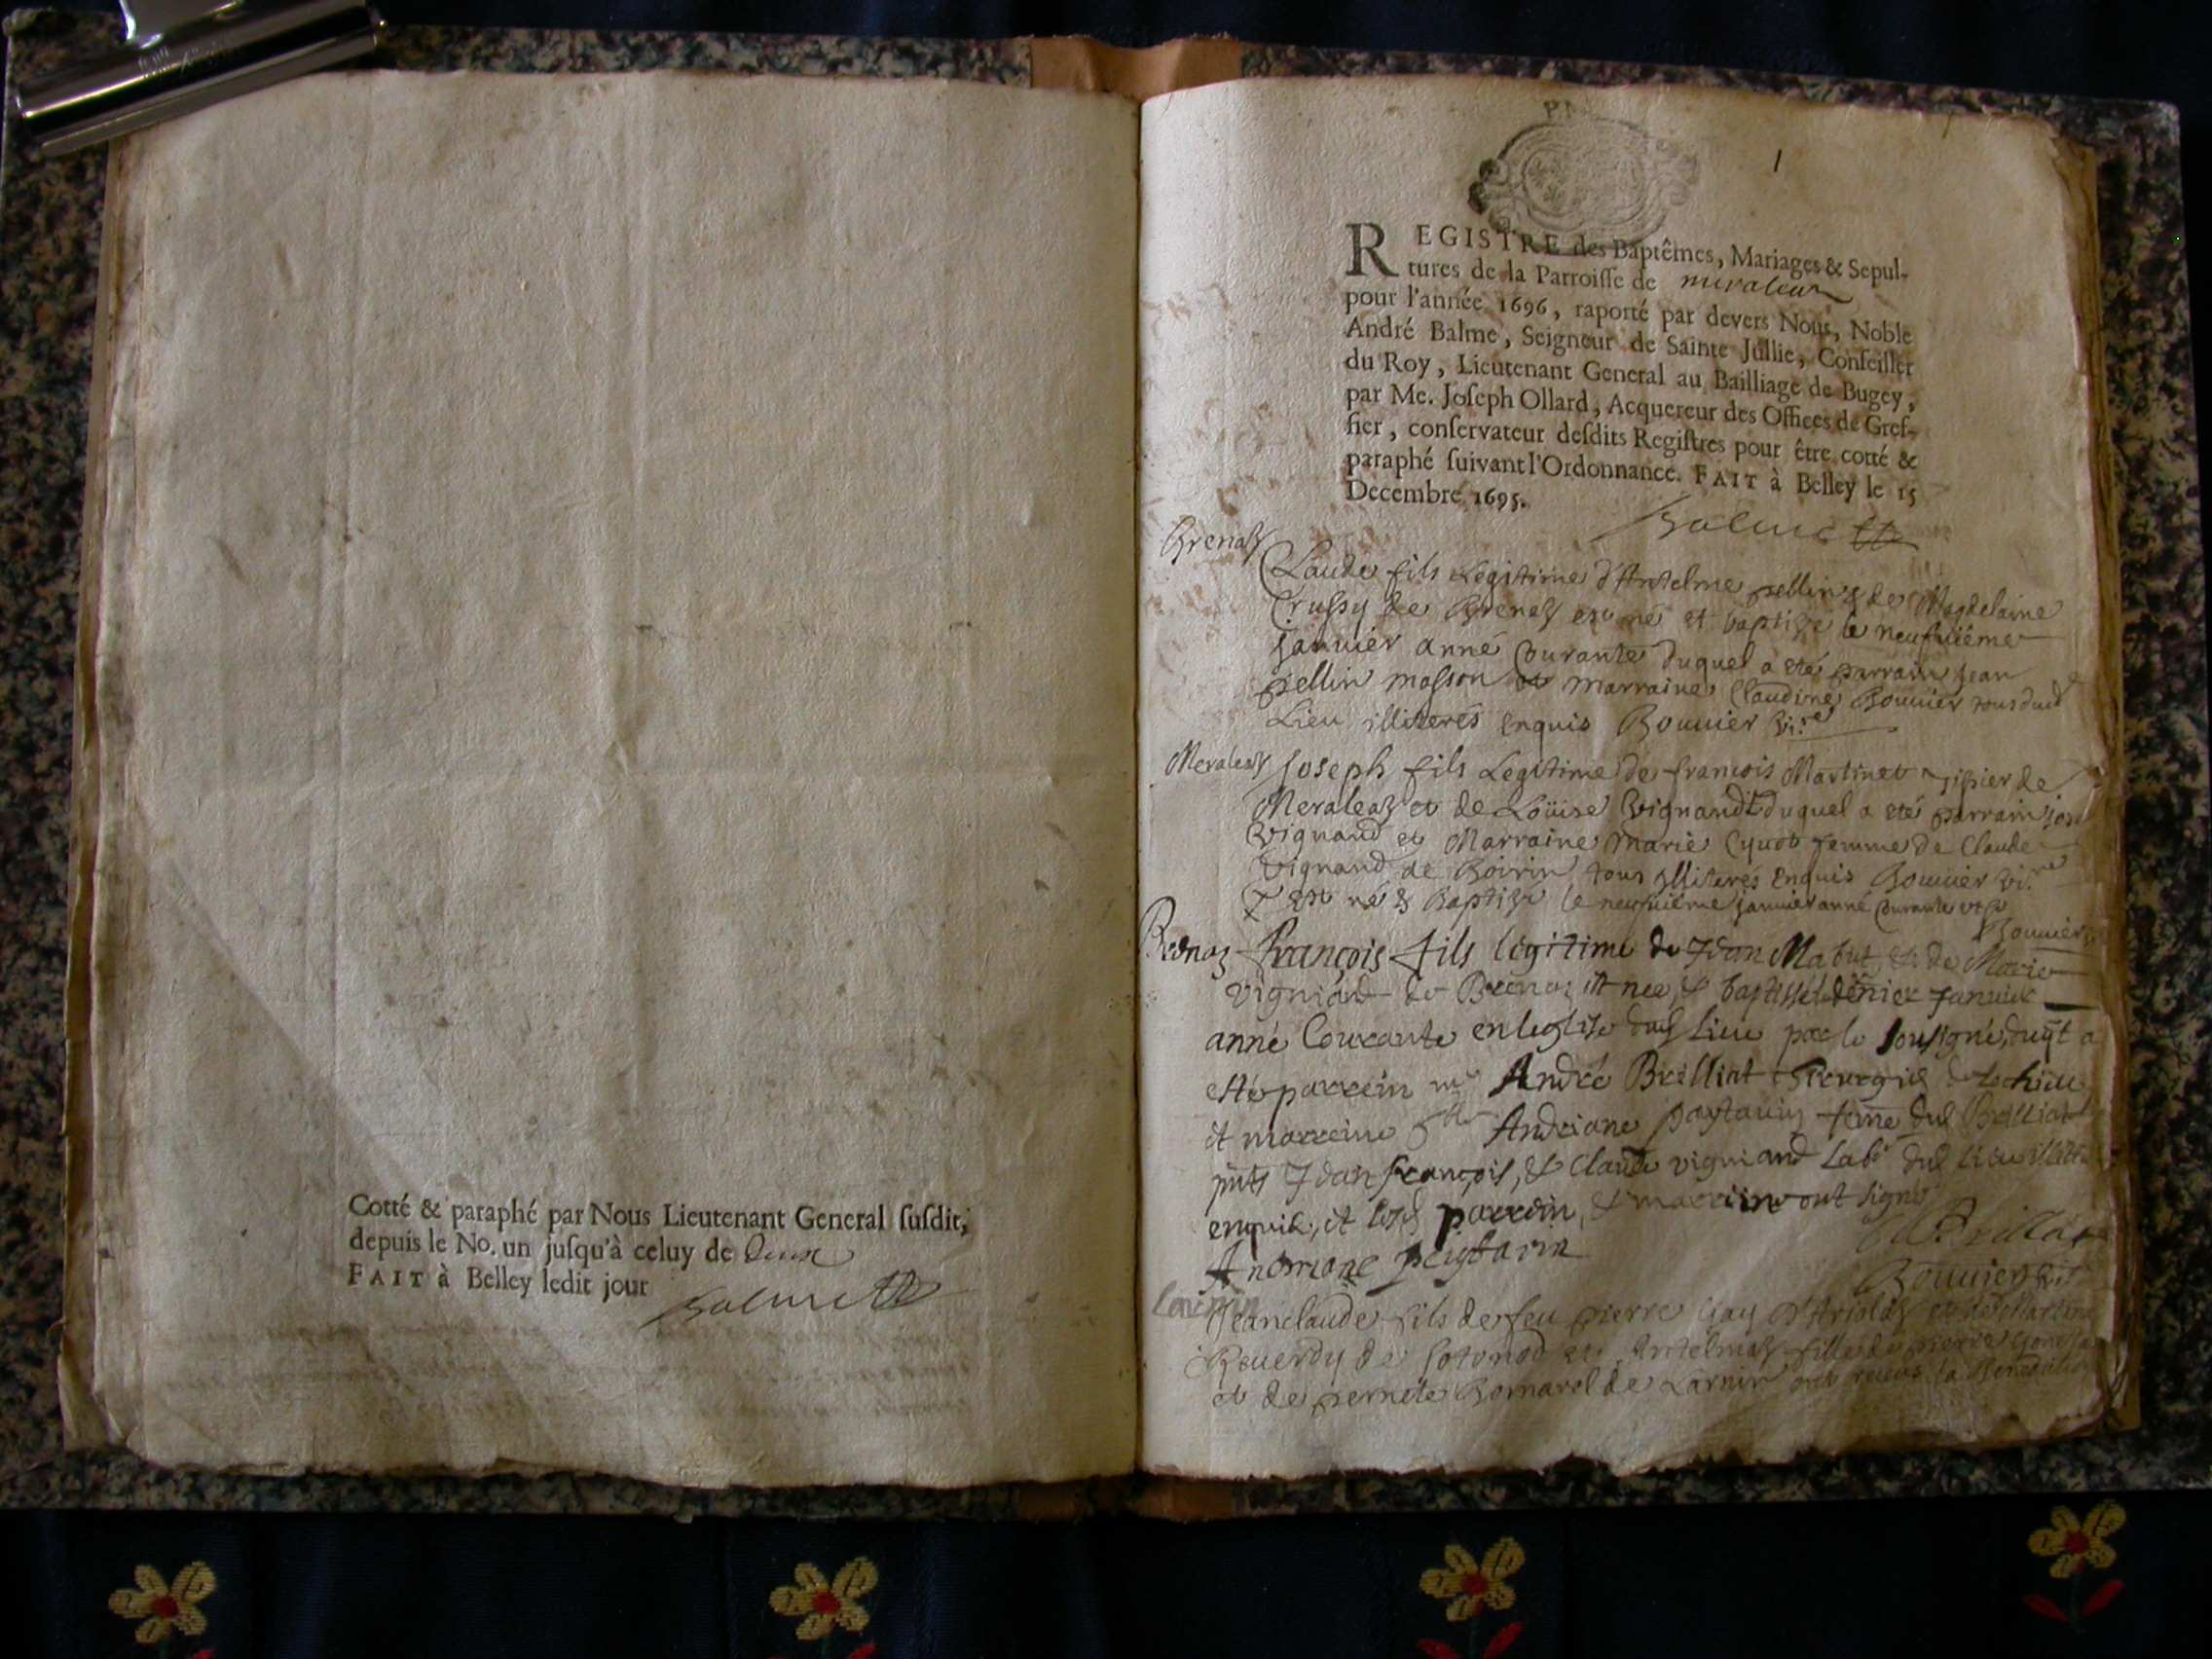 Cotté & paraphé par Nous Lieutenant General ſuſdit,
depuis le No. un juſqu'à celuy de deux
FAIT à Belley ledit jour
1
REGISTRE des Baptêmes, Mariages & Sepul-
tures de la Parroiſſe de
pour l'année 1696, raporté par devers Nous, Noble
André Balme, Seigneur de Sainte Jullie, Conſeiller
du Roy, Lieutenant General au Bailliage de Bugey,
par Me. Joſeph Ollard, Acquereur des Offices de Gref-
fier, conſervateur deſdits Regiſtres pour être cotté &
paraphé ſuivant l'Ordonnance. FAIT à Belley le 15
Decembre 1695.
Brenaz
Claude fils Legitime d'Antelme pellin & de Magdelaine
de Brenaz est né et baptize le neufuiéme
januier anné Courante duquel a eté parrain jean
pellin masson et marraine Claudine Bouuier tous dud
Lieu illiterés enquis Bouuier vi.re
Meraleaz
Joseph fils Legitime de francois Martinet de
Meraleaz et de Loüise Vignand duquel a eté parrain
Vignand et Marraine Marie femme de Claude
Vignand de Boirin tous illiterés enquis Bouuier vi.re
est né & Baptizé le neufuiéme januier anné Courante
Bouuier
Brenaz
François fils légitime de Jean Mabut & de Marie
vigniand de Brenaz est nee, & baptisse le denier januier
anné Courante en leglise dud Lieu par le soussigné, duqt a
esté parrein me André Brilliat de Lochieu
et marreine Andriane feme dud Brilliat
pnts Jean françois, & Claude vigniand Labr dud lieu
enquis, et lesd parrein, & marreine ont signé
Andriane
Brilliat
Bouuier
Jeanclaude fils de feu pierre Gay d'Artolaz et de Martine
Reuerdy de Sotonod et Antelmaz fille de pierre
et de pernete de Larnin ont receus la Benediction